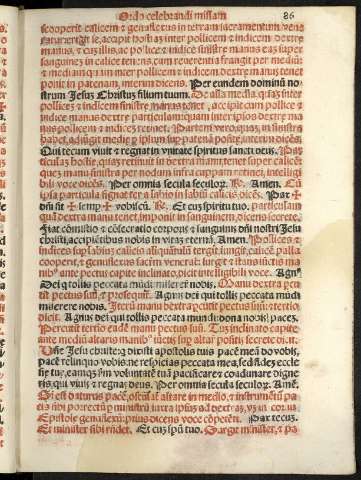 Ordo celebrandi missam 86
scooperit calicem & genuflexus in terram sacramentum vene
pollicem & indicem dextre
manus, & cũ illis, ac pollice & indice sinistre manus eas super
sanguinez in calice tenens, cum reverentia frangit per mediũ:
& mediam quam inter pollicem & indicem dextre manus tenet
ponit in patena, dicens. Per eundem dominũ no
strum Jesuz Christus filium tuum. De alia media, quaz inter
pollicez & indicem sinistre manus tenet, accipit cum pollice &
indice manus dextre particulam: quam inter ipsos dextre ma
nus pollicem & indicez retinet. Partem vero, quaz in sinistra
habet, adiũgit medie
Qui tecum vivit & regnat in vnitate spiritus sancti deus. Par
ticulaz hostie, quaz retinuit in dextra manu, tenet super calicē:
quez manu sinistra per nodum infra cuppam retinet, intelligi
bili voce dicẽs. Per omnia secula seculoꝝ. ℟. Amen. Cũ
ipsa particula signat ter a labio in labiũ calicis dicẽs. Pax ✠
dñi sit ✠ semp ✠ vobiscũ. ℟. Et cuz spiritu tuo. particulam
quã dextra manu tenet, imponit in sanguinem, dicens secrete.
Fiat cõmistio & cõsecratio corporis & sanguinis dñi nostri Jesu
christi, accipiẽtibus nobis in vitaz eternã. Amen. Pollices &
indices super labiuz calicis aliquãtulũ tergit, iungit, calicẽ palla
cooperit, & genuflexus sacrm veneraꞇ: surgit & stans iũctis ma
nibꝰ ante pectus capite inclinato, dicit intelligibili voce. Agnꝰ
Dei q tollis peccata mũdi miserere nobis. Manu dextra percu
tit pectus suũ, & prosequiꞇ. Agnus dei qui tollis peccata mũdi
miserere nobis. Iterũ manu dextra pcutit pectus suũ: & tertio,
dicit. Agnus dei qui tollis peccata mundi dona nobis pacez.
Percutit tertio eadẽ manu pectus suũ. Tũc inclinato capite
ante mediũ altaris manibꝰ iũctis sup altar positis secrete dicit.
Dñe Jesu christe q dixisti apostolis tuis pacẽ meã do vobis,
pacẽ relinquo vobis: ne respicias peccata mea, sed fidẽ ecclie
tue, eamqz ẽm volũtatẽ tuã pacificare & coadunare digne
ris. qui vivis & regnas deus. Per omnia secula seculoꝝ. Amẽ.
Si est daturus pacẽ, osculaꞇ altare in medio, & instrumẽtũ pa
cis sibi porrectũ p ministrũ iuxta ipsuz ad dextraz, vz in cornu
Epistole genuflexũ: prius dicens voce cõpetẽti. Pax tecuz.
Et minister sibi rñdet. Et cuz spũ tuo. Surgit minister, & pa